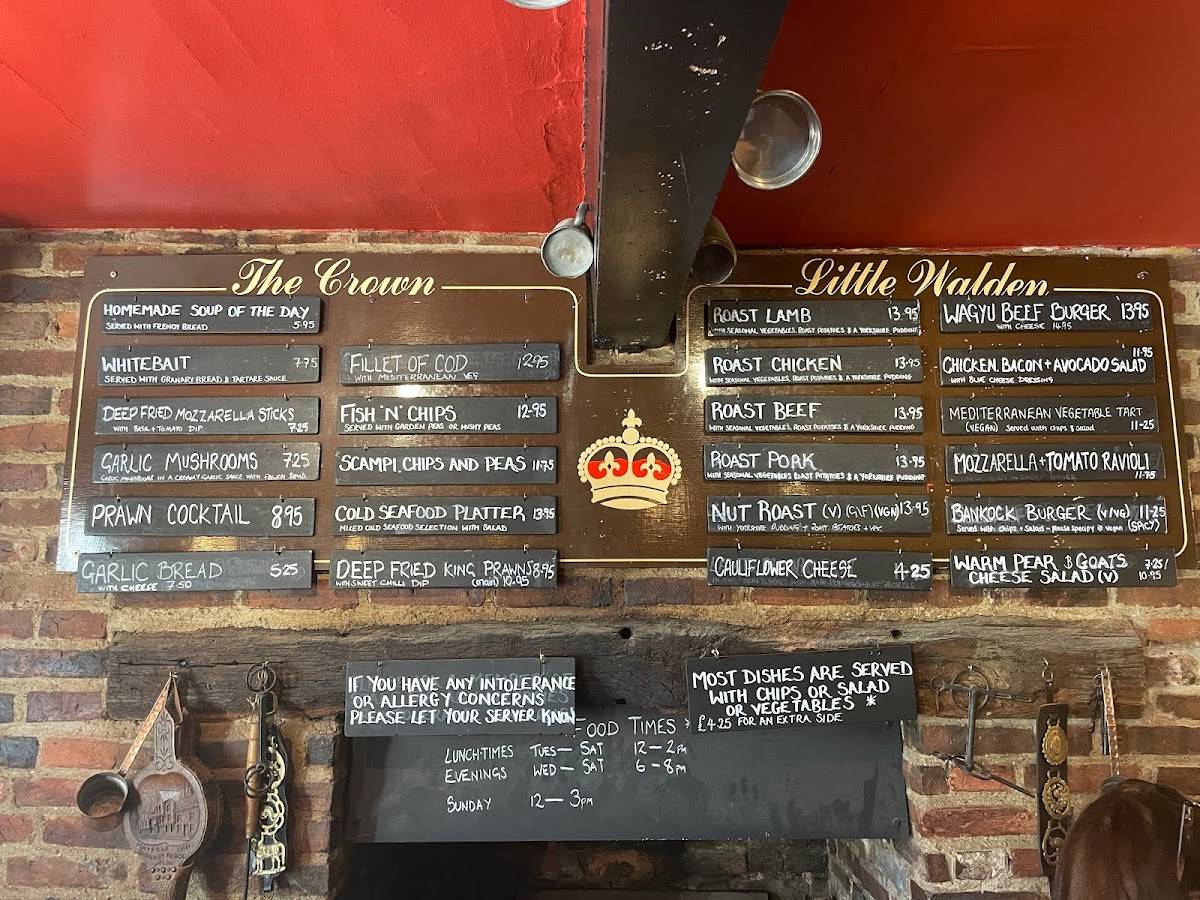 The Crown
Little Walden
HOMEMADE SOUP OF THE DAY
SERVED WITH FRENCH BREAD 5.95
WHITEBAIT 7.75
SERVED WITH GRANARY BREAD & TARTARE SAUCE
DEEP FRIED MOZZARELLA STICKS
WITH BASIL + TOMATO DIP 7.25
GARLIC MUSHROOMS 7.25
GARLIC MUSHROOMS IN A CREAMY GARLIC SAUCE WITH FRENCH BREAD
PRAWN COCKTAIL 8.95
GARLIC BREAD 5.25
WITH CHEESE 7.50
FILLET OF COD 12.95
WITH MEDITERRANEAN VEG
FISH 'N' CHIPS 12.95
SERVED WITH GARDEN PEAS OR MUSHY PEAS
SCAMPI, CHIPS AND PEAS 11.75
COLD SEAFOOD PLATTER 13.95
MIXED COLD SEAFOOD SELECTION WITH SALAD
DEEP FRIED KING PRAWNS 8.95
WITH SWEET CHILLI DIP (main) 10.95
ROAST LAMB 13.95
WITH SEASONAL VEGETABLES, ROAST POTATOES & A YORKSHIRE PUDDING
ROAST CHICKEN 13.95
WITH SEASONAL VEGETABLES, ROAST POTATOES & A YORKSHIRE PUDDING
ROAST BEEF 13.95
WITH SEASONAL VEGETABLES, ROAST POTATOES & A YORKSHIRE PUDDING
ROAST PORK 13.95
WITH SEASONAL VEGETABLES ROAST POTATOES & A YORKSHIRE PUDDING
NUT ROAST (V) (GF) (VGN) 13.95
WITH YORKSHIRE PUDDING + ROAST POTATOES + VEG
CAULIFLOWER CHEESE 4.25
WAGYU BEEF BURGER 13.95
WITH CHEESE 14.95
CHICKEN, BACON + AVOCADO SALAD 11.95
WITH BLUE CHEESE DRESSING
MEDITERRANEAN VEGETABLE TART
(VEGAN) Served with chips & salad 11-25
MOZZARELLA + TOMATO RAVIOLI
11.75
BANKOCK BURGER (V/VG) 11-25
Served with chips + Salad - please specify if vegan (SPICY)
WARM PEAR & GOATS 7.25/
CHEESE SALAD (V) 10.95
IF YOU HAVE ANY INTOLERANCE
OR ALLERGY CONCERNS
PLEASE LET YOUR SERVER KNOW
MOST DISHES ARE SERVED
WITH CHIPS OR SALAD
OR VEGETABLES *
£4.25 FOR AN EXTRA SIDE
FOOD TIMES *
LUNCH-TIMES TUES — SAT 12 — 2PM
EVENINGS WED — SAT 6 — 8PM
SUNDAY 12 — 3PM